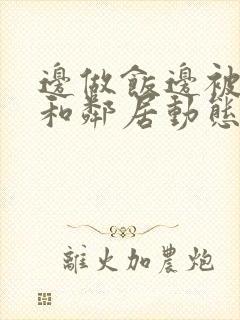 邊做飯邊被
和鄰居動態
離火加農炮